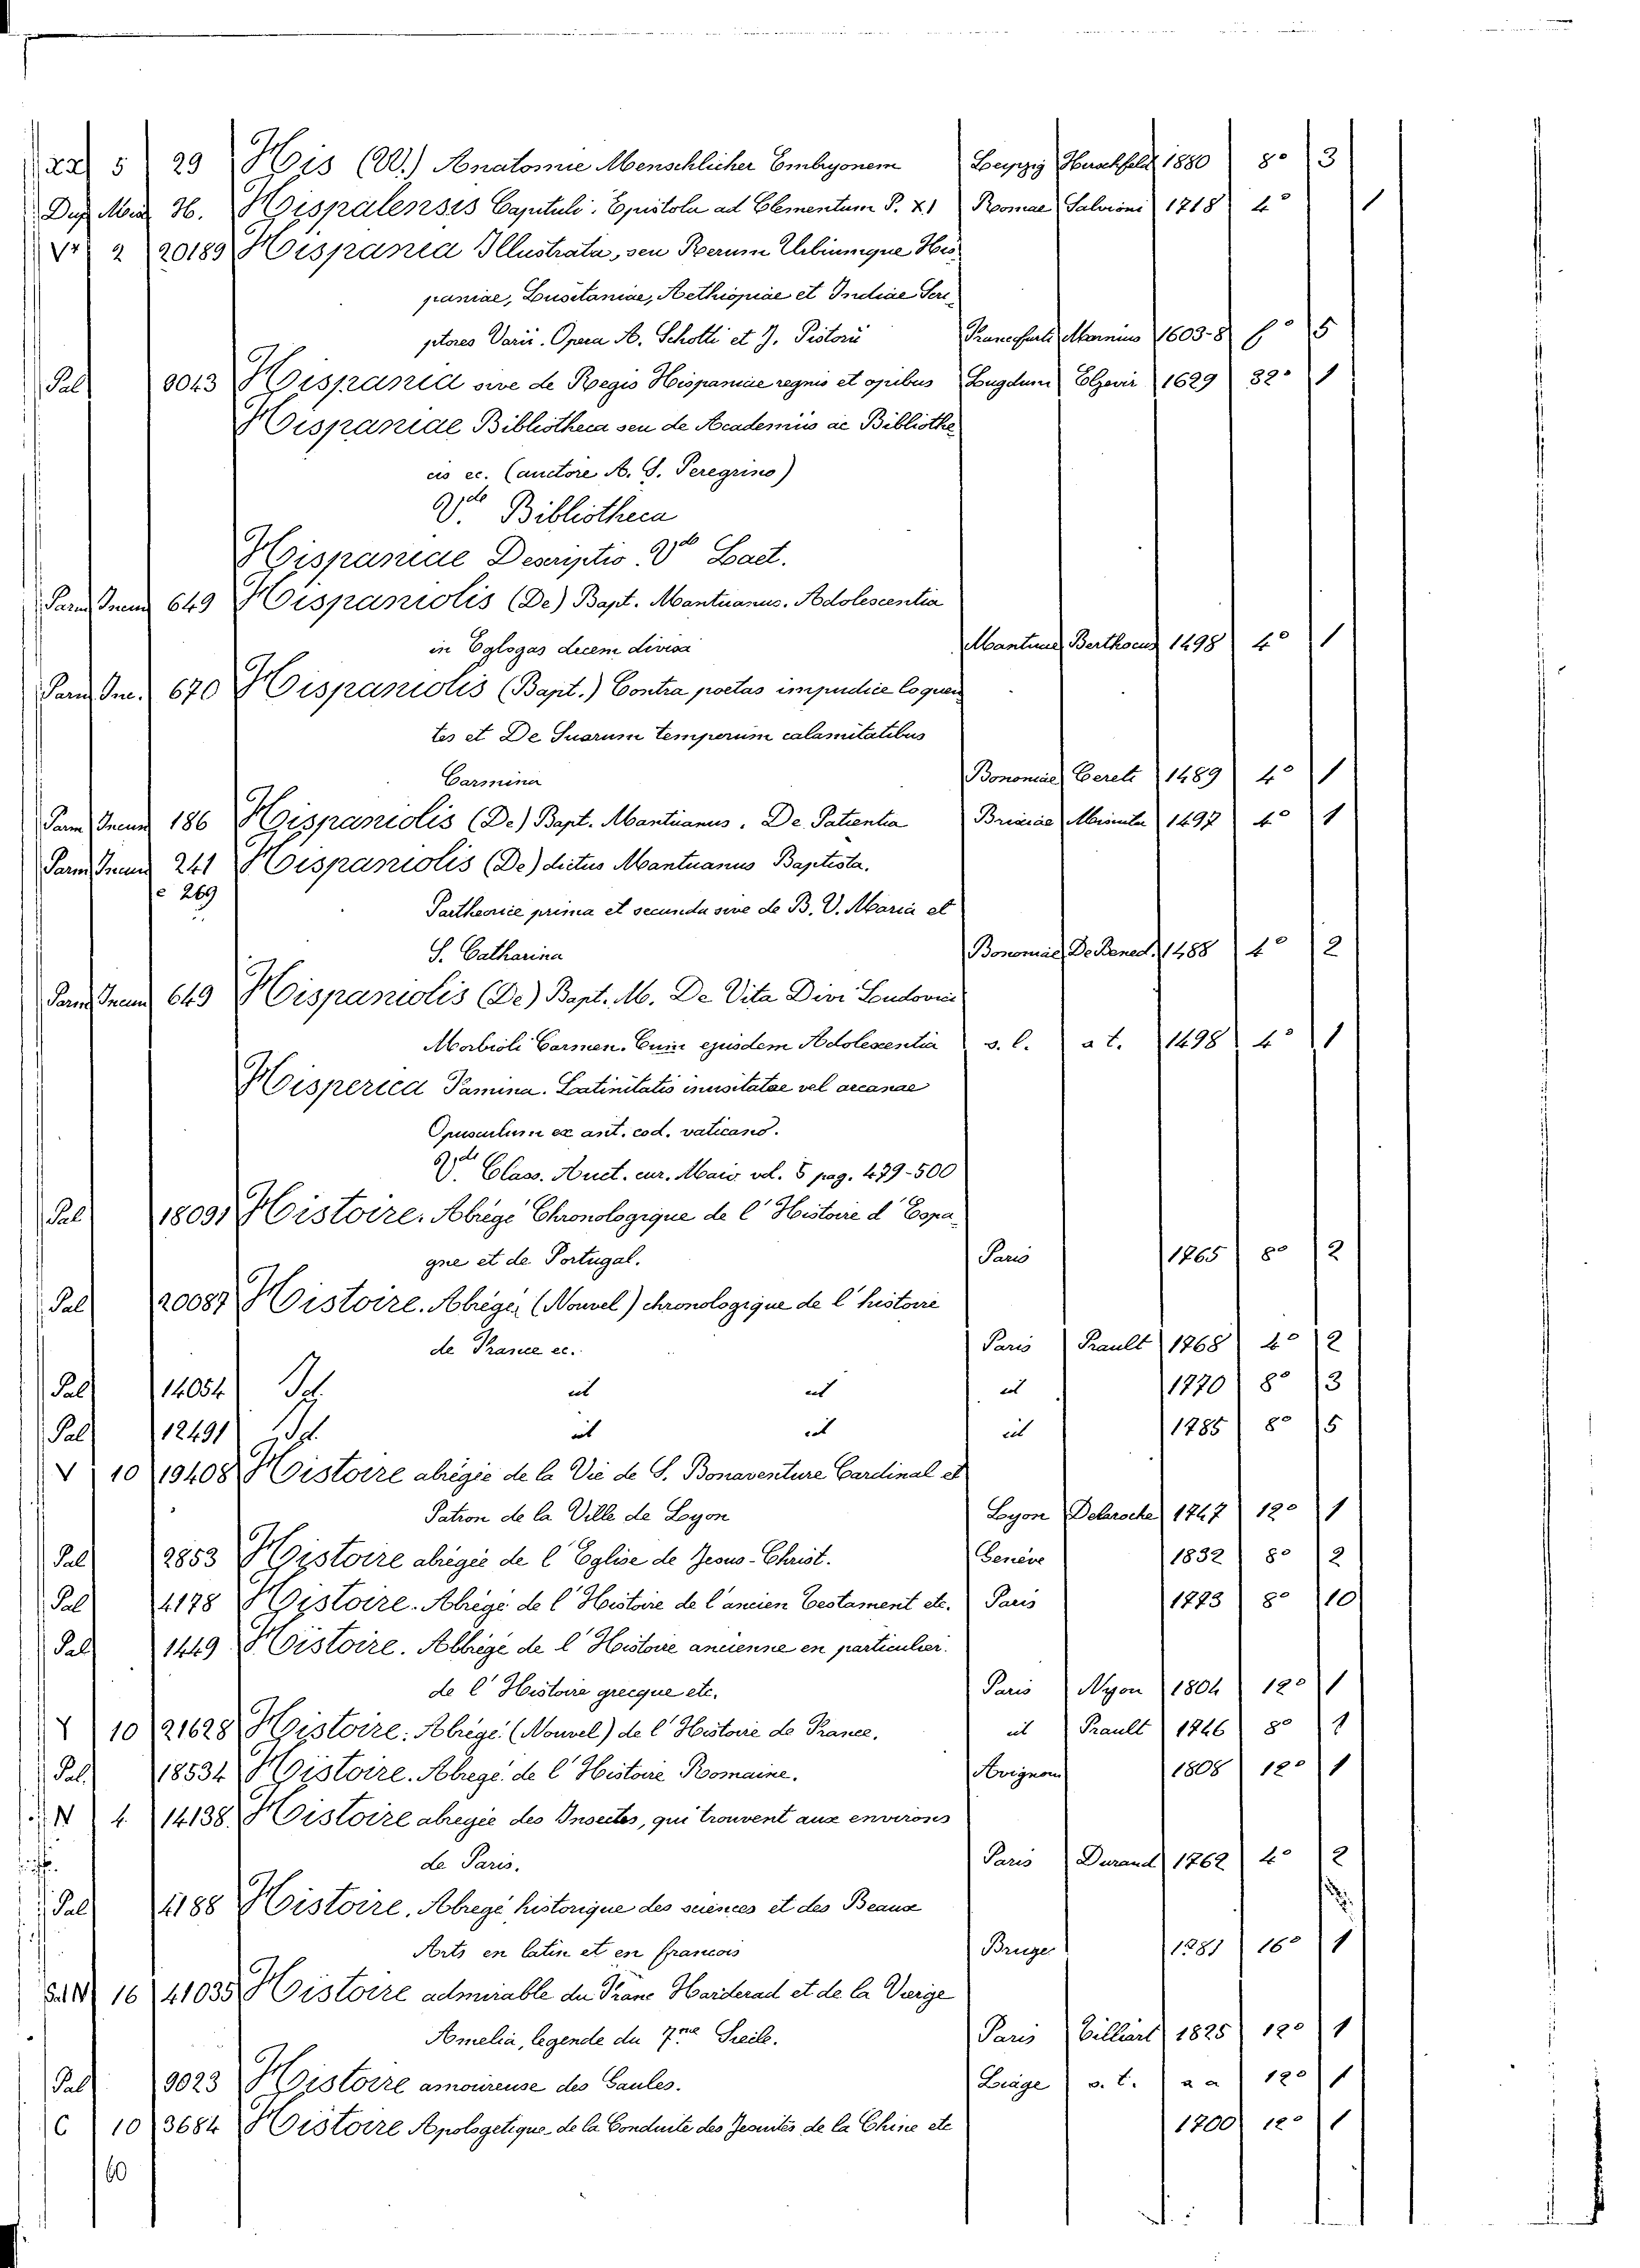 5 29 His (W.) Anatomie Menschlicher Embryonem Leipzig Hirschfeld 1880 8º 3
H. Hispalensis Capituli. Epistola ad Clementum P. XI Romae Salvioni 1718 4º 1
V 2 20189 Hispania Illustrata, seu Rerum Urbiumque His
paniae, Lusitaniae, Aethiopiae et Indiae Scri
ptores Varii. Opera A. Schotti et J. Pistorii Francofurti Marnius 1603-8 fº 5
Pal 8043 Hispania sive de Regis Hispaniae regnis et opibus Lugduni Elzevir 1629 32º 1
Hispaniae Bibliotheca seu de Academiis ac Bibliothe
cis ec. (auctore A. S. Peregrino)
V.de Bibliotheca
Hispaniae Descriptio. Vde Laet.
Parm Incun 649 Hispaniolis (De) Bapt. Mantuanus. Adolescentia
in Eglogas decem divisa Mantuae Berthocus 1498 4º 1
Parm Inc. 670 Hispaniolis (Bapt.) Contra poetas impudice loquen
tes et De Suorum temporum calamitatibus
Carmina Bononiae Cereti 1489 4º 1
Parm Incun 186 Hispaniolis (De) Bapt. Mantuanus. De Patientia Brixiae Misinta 1497 4º 1
Parm Incun 241 Hispaniolis (De) dictus Mantuanus Baptista.
e 269
Parthenice prima et secunda sive de B. V. Maria et
S. Catharina Bononiae De Bened. 1488 4º 2
Parm Incun 649 Hispaniolis (De) Bapt. M. De Vita Divi Loudovici
Morbioli Carmen. Cum ejusdem Adolescentia s. l. a t. 1498 4º 1
Hisperica Famina. Latinitatis inusitatae vel arcanae
Opusculum ex ant. cod. vaticano.
V.de Class. Auct. cur. Maio vol. 5 pag. 479-500
Pal 18091 Histoire. Abrégé Chronologique de l'Histoire d'Espa
gne et de Portugal. Paris 1765 8º 2
Pal 20087 Histoire. Abrégé (Nouvel) chronologique de l'histoire
de France ec. Paris Prault 1768 4º 2
Pal 14054 Id. ut ut ut 1770 8º 3
Pal 12491 Id. ut ut ut 1785 8º 5
V 10 19408 Histoire abrégée de la Vie de S. Bonaventure Cardinal et
Patron de la Ville de Lyon Lyon Delaroche 1747 12º 1
Pal 2853 Histoire abrégée de l'Eglise de Jesus-Christ. Genève 1832 8º 2
Pal 4178 Histoire. Abrégé de l'Histoire de l'ancien Testament etc. Paris 1773 8º 10
Pal 1449 Histoire. Abbrégé de l'Histoire ancienne en particulier
de l'Histoire grecque etc. Paris Nyon 1804 12º 1
Y 10 21628 Histoire. Abrégé (Nouvel) de l'Histoire de France. ut Prault 1746 8º 1
Pal. 18534 Histoire. Abregé de l'Histoire Romaine. Avignon 1808 12º 1
N 4 14138. Histoire abregée des Insectes, qui trouvent aux environs
de Paris. Paris Durand 1762 4º 2
Pal 4188 Histoire. Abregé historique des sciences et des Beaux
Arts en latin et en francois Bruges 1781 16º 1
16 41035 Histoire admirable du Franc Harderad et de la Vierge
Amelia, legende du 7me Siecle. Paris Tilliard 1825 12º 1
Pal 9023 Histoire amoureuse des Gaules. Liège s. t. a a 12º 1
C 10 3684 Histoire Apologetique de la Conduite des Jesuites de la Chine etc 1700 12º 1
60